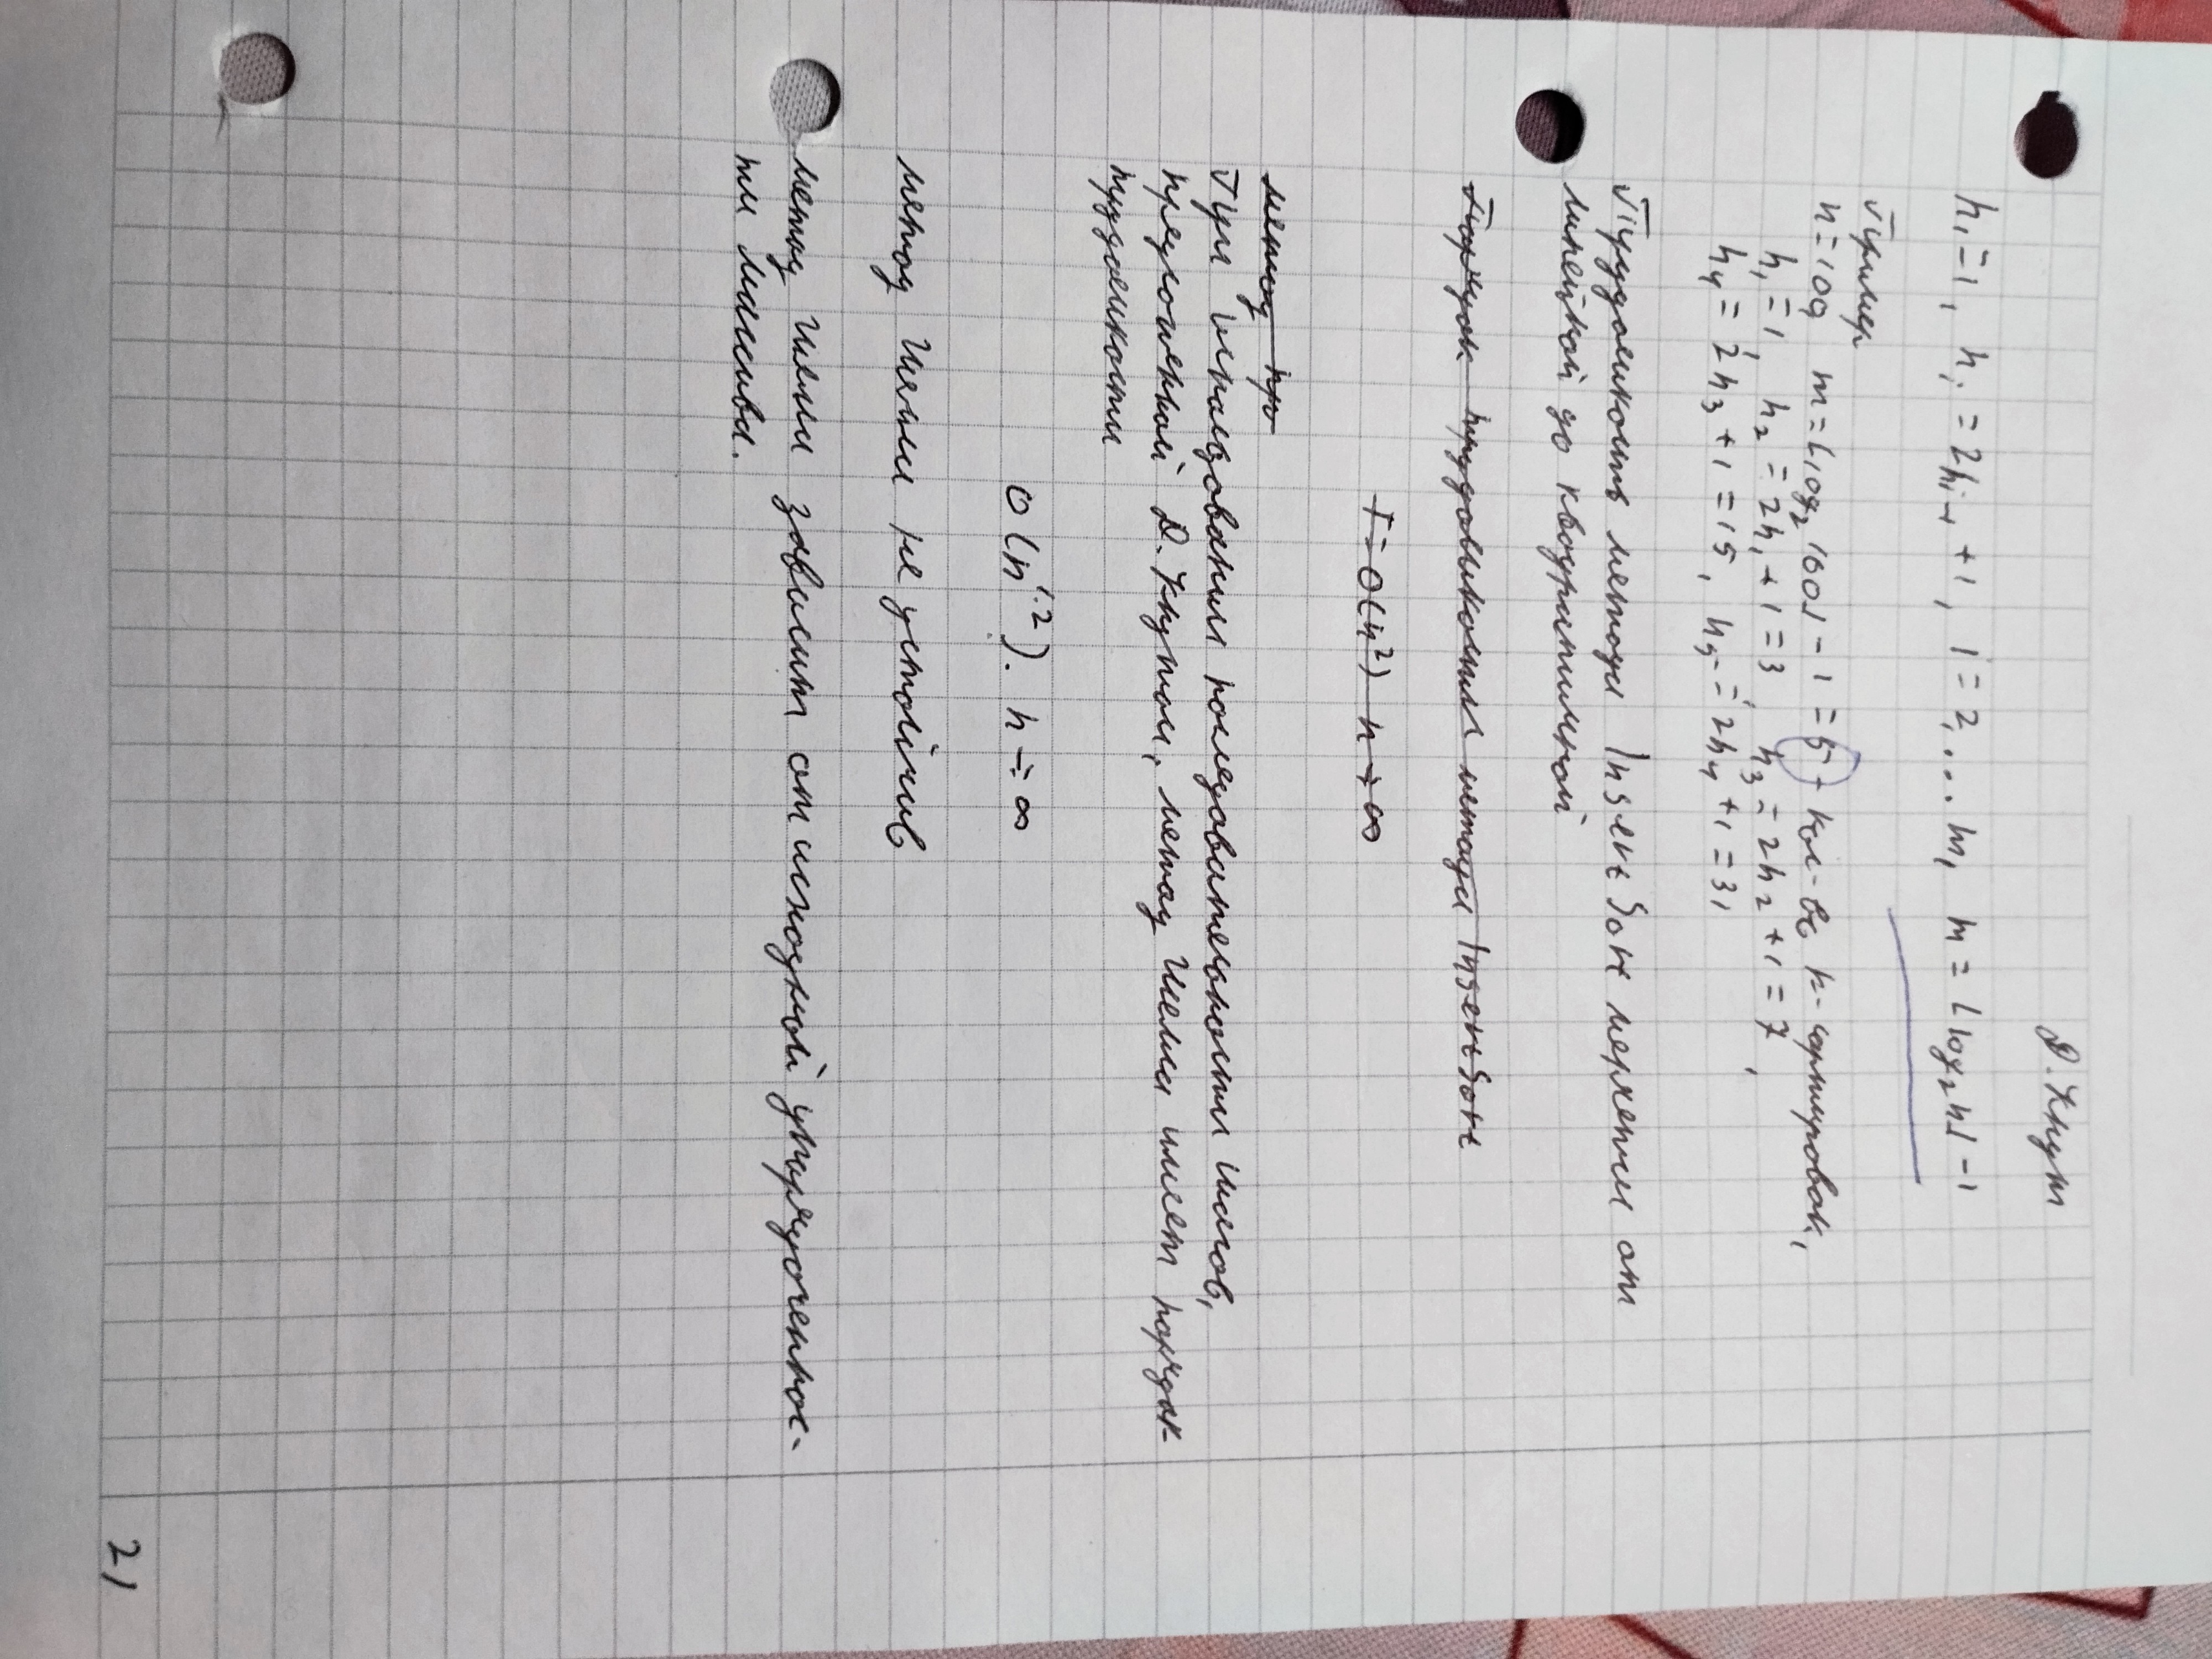 Д. Кнут
h₁=1, hᵢ = 2hᵢ₋₁ +1, i=2,...m, m = ⌊log₂n⌋ -1
Пример
n=100 m=⌊log₂100⌋ - 1 = 5 - кол-во k-сортировок,
h₁=1, h₂ = 2h₁+1=3, h₃=2h₂+1=7,
h₄= 2h₃+1=15, h₅=2h₄+1=31
Трудоемкость метода InsertSort меряется от
линейной до квадратичной
Порядок трудоемкости метода InsertSort
T=O(n²) n→∞
метод пр
При использовании последовательности шагов,
предложенной Д. Кнутом, метод Шелла имеет порядок
трудоемкости
O(n^1.2). n→∞
метод Шелла не устойчив
метод Шелла зависит от исходной упорядоченнос-
ти массива.
21